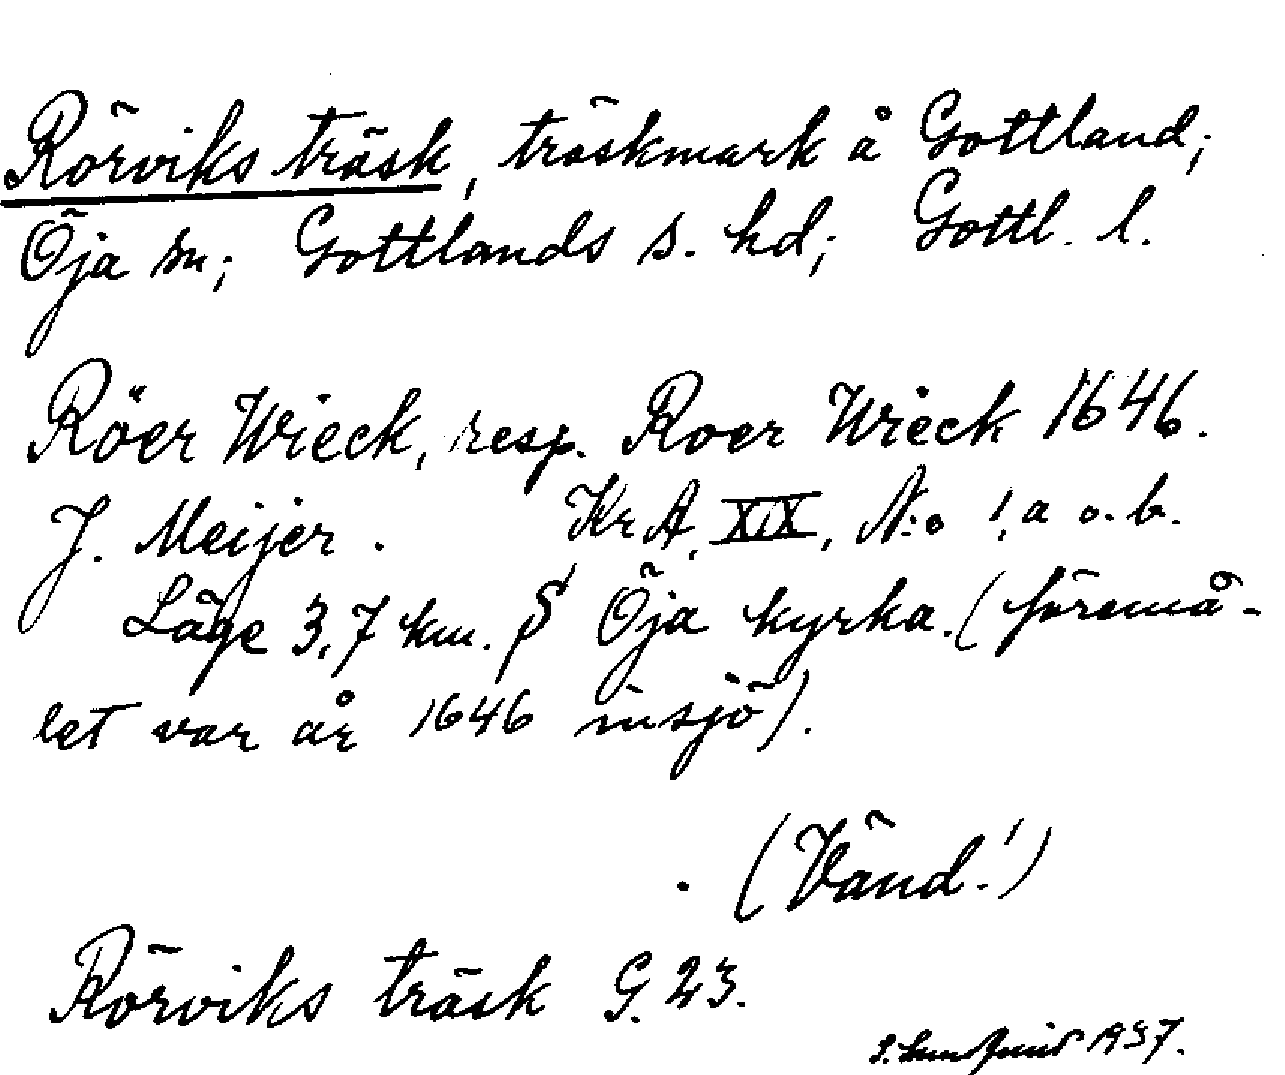 Rörviks träsk, träskmark å Gottland;
Öja sn; Gottlands s. hd; Gottl. l.
Röer Wieck, resp. Roer Wieck 1646.
J. Meijer. KrA, XIX, N:o 1, a o. b.
Läge 3,7 km. S Öja kyrka. (föremå-
let var år 1646 insjö).
(Vänd!)
Rörviks träsk G. 23.
1937.